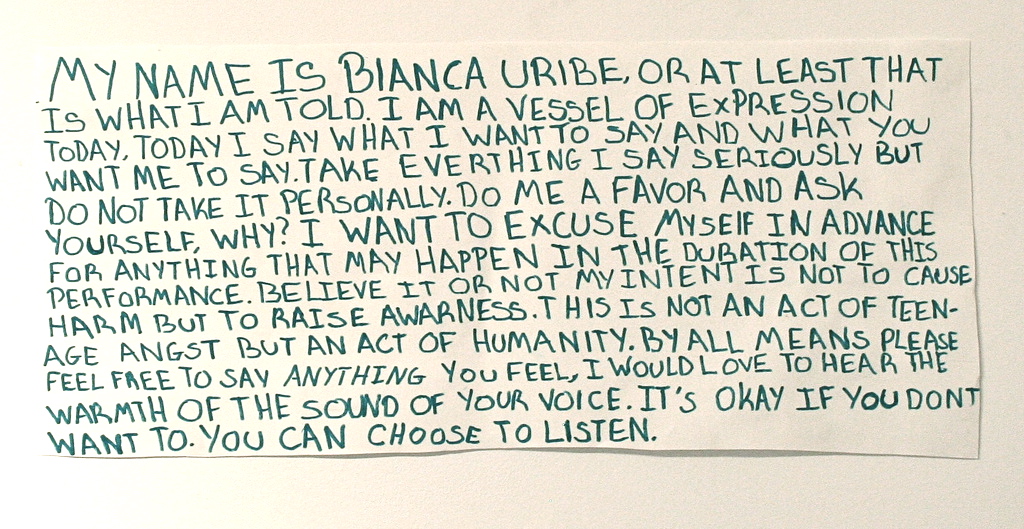 MY NAME IS BIANCA URIBE, OR AT LEAST THAT
IS WHAT I AM TOLD. I AM A VESSEL OF EXPRESSION
TODAY, TODAY I SAY WHAT I WANT TO SAY AND WHAT YOU
WANT ME TO SAY. TAKE EVERTHING I SAY SERIOUSLY BUT
DO NOT TAKE IT PERSONALLY. DO ME A FAVOR AND ASK
YOURSELF, WHY? I WANT TO EXCUSE MYSElF IN ADVANCE
FOR ANYTHING THAT MAY HAPPEN IN THE DURATION OF THIS
PERFORMANCE. BELIEVE IT OR NOT MY INTENT IS NOT TO CAUSE
HARM BUT TO RAISE AWARNESS. THIS IS NOT AN ACT OF TEEN-
AGE ANGST BUT AN ACT OF HUMANITY. BY ALL MEANS PLEASE
FEEL FREE TO SAY ANYTHING YOU FEEL, I WOULD LOVE TO HEAR THE
WARMTH OF THE SOUND OF YOUR VOICE. IT'S OKAY IF YOU DONT
WANT TO. YOU CAN CHOOSE TO LISTEN.